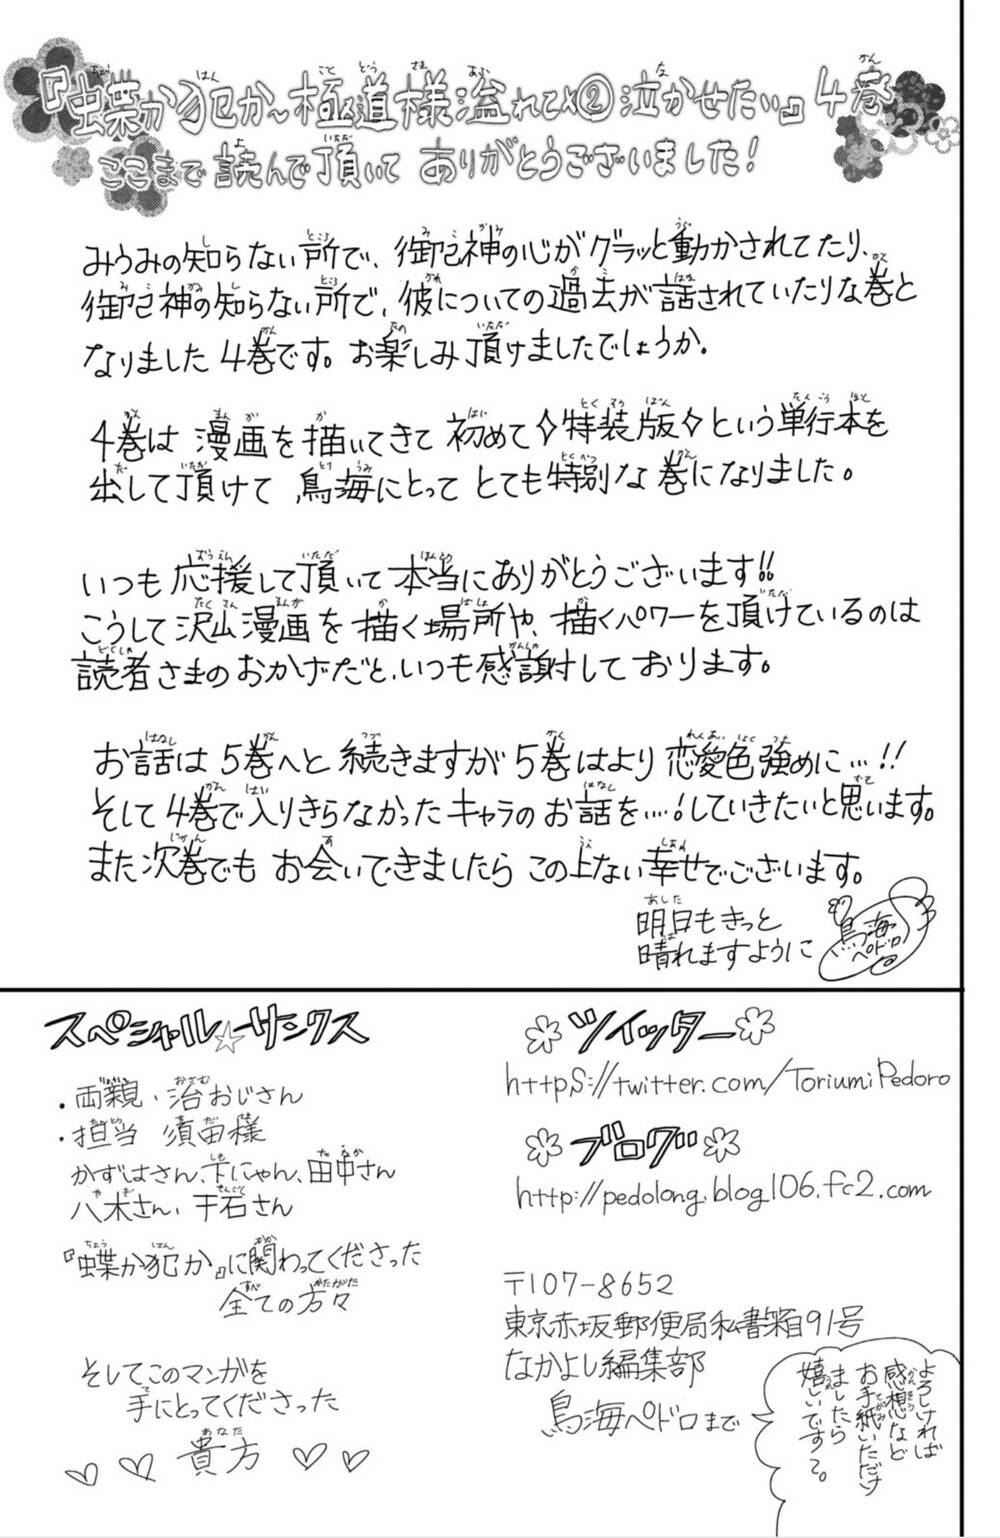 『蝶か犯か~極道様溢れて×②泣かせたい』4巻
ここまで読んで頂いてありがとうございました!
みうみの知らない所で、御乙神の心がグラッと動かされてたり、
御乙神の知らない所で、彼についての過去が話されていたりな巻と
なりました4巻です。お楽しみ頂けましたでしょうか.
4巻は漫画を描いてきて初めて✧特装版✧という単行本を
出して頂けて、鳥海にとってとても特別な巻になりました。
いつも応援して頂いて本当にありがとうございます!!
こうして沢山漫画を描く場所や、描くパワーを頂けているのは
読者さまのおかげだと、いつも感謝しております。
お話は5巻へと続きますが5巻はより恋愛色強めに…!!
そして4巻で入りきらなかったキャラのお話を…!していきたいと思います。
また次巻でもお会いできましたらこの上ない幸せでございます。
明日もきっと
晴れますように
鳥海
ペドロ
スペシャル☆サンクス
・両親、治おじさん
・担当 須田様
かずはさん、下にゃん、田中さん
八木さん、千石さん
『蝶か犯か』に関わってくださった
全ての方々
そしてこのマンガを
手にとってくださった
貴方
ツイッター
https://twitter.com/ToriumiPedoro
ブログ
http://pedolong.blog106.fc2.com
〒107-8652
東京赤坂郵便局私書箱91号
なかよし編集部
鳥海ペドロまで
よろしければ
感想など
お手紙いただけ
ましたら
嬉しいですって。